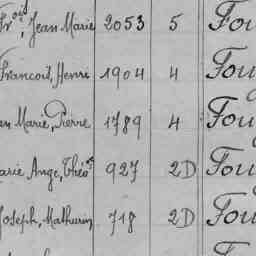 Frois, Jean Marie 2053 5 Fou
Francois, Henri 1904 4 Fou
Marie, Pierre 1789 4 Fou
Marie Ange, Théo 927 2D Fou
Joseph, Mathurin 718 2D Fou